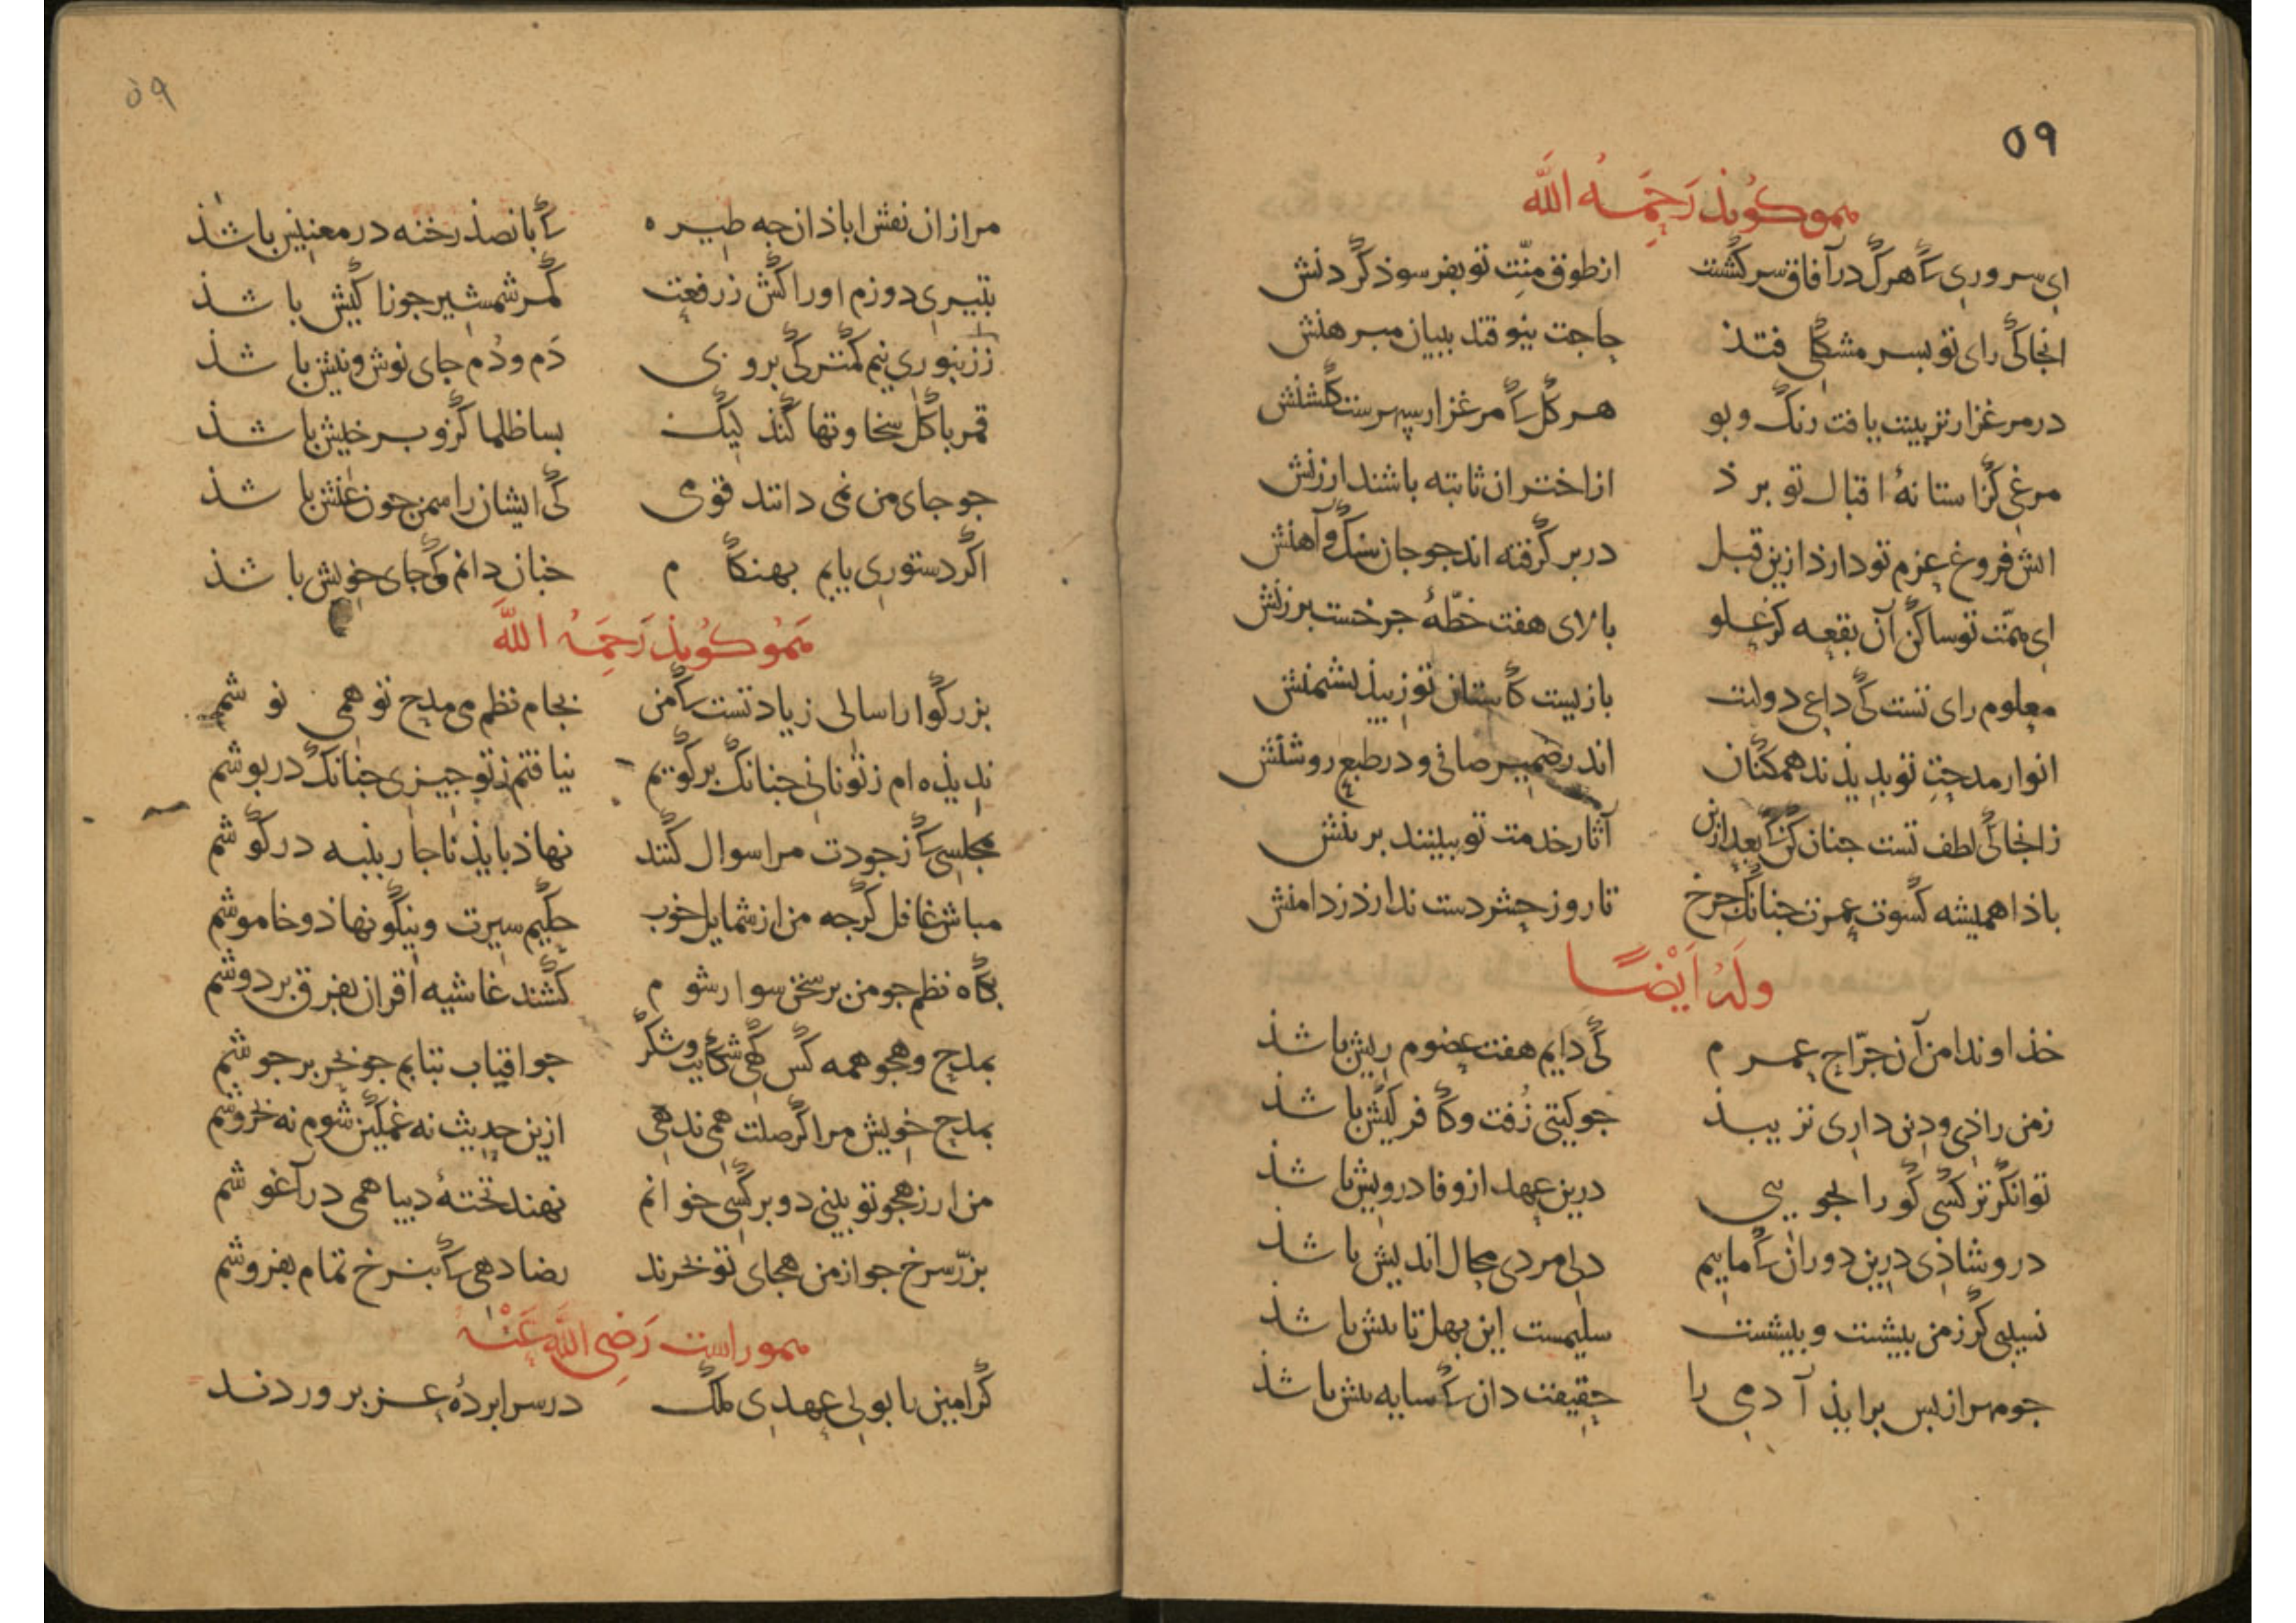 ۵۹
همو گوید رحمه الله
ای سروری که هرک در آفاق سرکشست از طوق منّت تو بفرسوذ گردنش
انجا کی رای تو بسر مشکلی فتذ حاجت نیوفتد ببیان مبرهنش
در مرغزار تربیتت یافت رنگ و بو هر گل که مرغزار سپهرست گلشنش
مرغی کز استانهٔ اقبال تو برذ از اختران ثابته باشند ارزنش
اتش فروغ عزم تو دارذ ازین قبل در بر گرفته اند جو جان سنگ و آهنش
ای همّت تو ساکن آن بقعه کز علو بالای هفت خطّهٔ جرخست برزنش
معلوم رای تست کی داعی دولت بازیست کاستان تو زیبذ نشیمنش
انوار مدحت تو بدیذند همکنان اندر ضمیر صافی و در طبع روشنش
زانجا کی لطف تست جنان کن که بعد ازین آثار خدمت تو ببینند بر تنش
باذا همیشه کسوت عمرت جنانک جرخ تا روز حشر دست ندارذ ز دامنش
وله ایضًا
خذاوندا من آن جرّاح عمرم کی دایم هفت عضوم ریش باشذ
ز من راذی و دین داری نزیبذ جو کیتی زُفت و کافر کیش باشذ
توانگرتر کسی کو را بجویی درین عهد از وفا درویش باشذ
در و شاذی درین دوران که ماییم دل مردی محال اندیش باشذ
نسیبی کز من بیشست و بیشست سلیمست این بهل تا بیش باشذ
جو مهر از بس برایذ آدمی را حقیقت دان که سایه بیش باشذ
۵۹
مرا زان نقش اباذان جه طیره که با نصذ رخنه در معنیش باشذ
بتیری دوزم اورا کش ز رفعت کمر شمشیر جوزا کیش باشذ
ز زنبوری نیم کمتر کی بروی دَم و دُم جای نوش و نیش باشذ
قمر با گل سخاوتها کنذ لیک بسا ظلما کزو بر خیش باشذ
جو جای من نمی دانند قومی کی ایشان را سمن جون غیش باشذ
اگر دستوری یابم بهنگام جنان دانم کی جای خویش باشذ
همو گوید رحمه الله
بزرگوارا سالی زیادتست که من بجام نظم می مدح تو همی نوشم
ندیذه ام ز تو نانی جنانک برگویم نیافتم ز تو جیزی جنانک درپوشم
مجلسی که ز جودت مرا سوال کنند نهاذ بایذ ناجار پنبه در گوشم
مباش غافل گرجه من از شمایل خوب حکیم سیرت و نیکو نهاذ و خاموشم
بگاه نظم جو من بر سخن سوار شوم کشند غاشیه اقران بفرق بر دوشم
بمدح و هجو همه کس گهی شکایت و شکر جو افتاب بتابم جو بحر بر جوشم
بمدح خویش مرا گر صلت همی ندهی ازین حدیث نه غمگین شوم نه بخروشم
من ار ز هجو تو بیتی دو بر کسی خوانم نهند تختهٔ دیبا همی در آغوشم
بزرّ سرخ جو از من هجای تو بخرند رضا دهی که بنرخ تمام بفروشم
همو راست رضی الله عنه
گر امین بابو لی عهدی ملک در سرابردهٔ عز بروردند